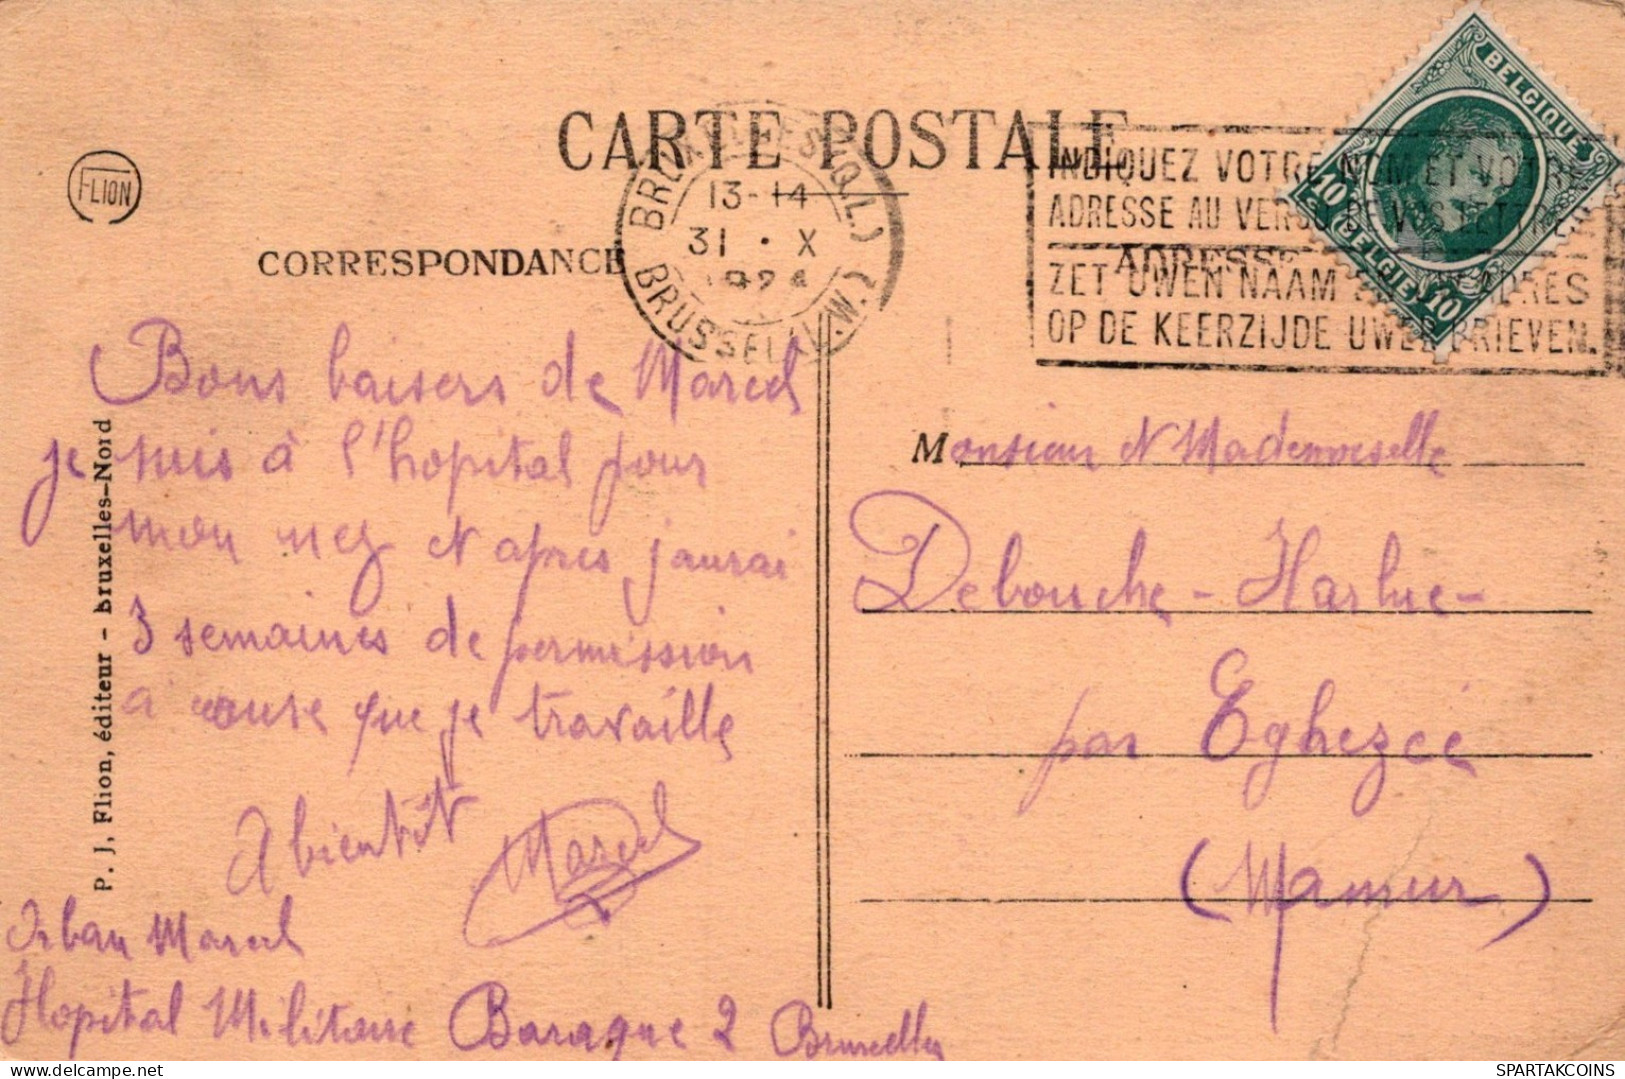 CARTE POSTALE
FLION
CORRESPONDANCE
BRUXELLES (Q.L.)
13-14
31 · X
1924
BRUSSEL (L.W.)
INDIQUEZ VOTRE NOM ET VOTRE
ADRESSE AU VERSO DE VOS LETTRES
ZET UWEN NAAM EN ADRES
OP DE KEERZIJDE UWER BRIEVEN.
BELGIQUE
10 BELGIË 10
ADRESSE
Bons baisers de Marcel
je suis à l'hopital pour
mon nez et apres j'aurai
3 semaines de permission
a cause que je travaille
A bientôt Marcel
Marcel
Hopital Militaire Baraque 2 Bruxelles
P. J. Flion, éditeur - bruxelles-Nord
Monsieur et Mademoiselle
Debouche - Harlue -
par Eghezée
(Namur)
SPARTAKCOINS
www.delcampe.net